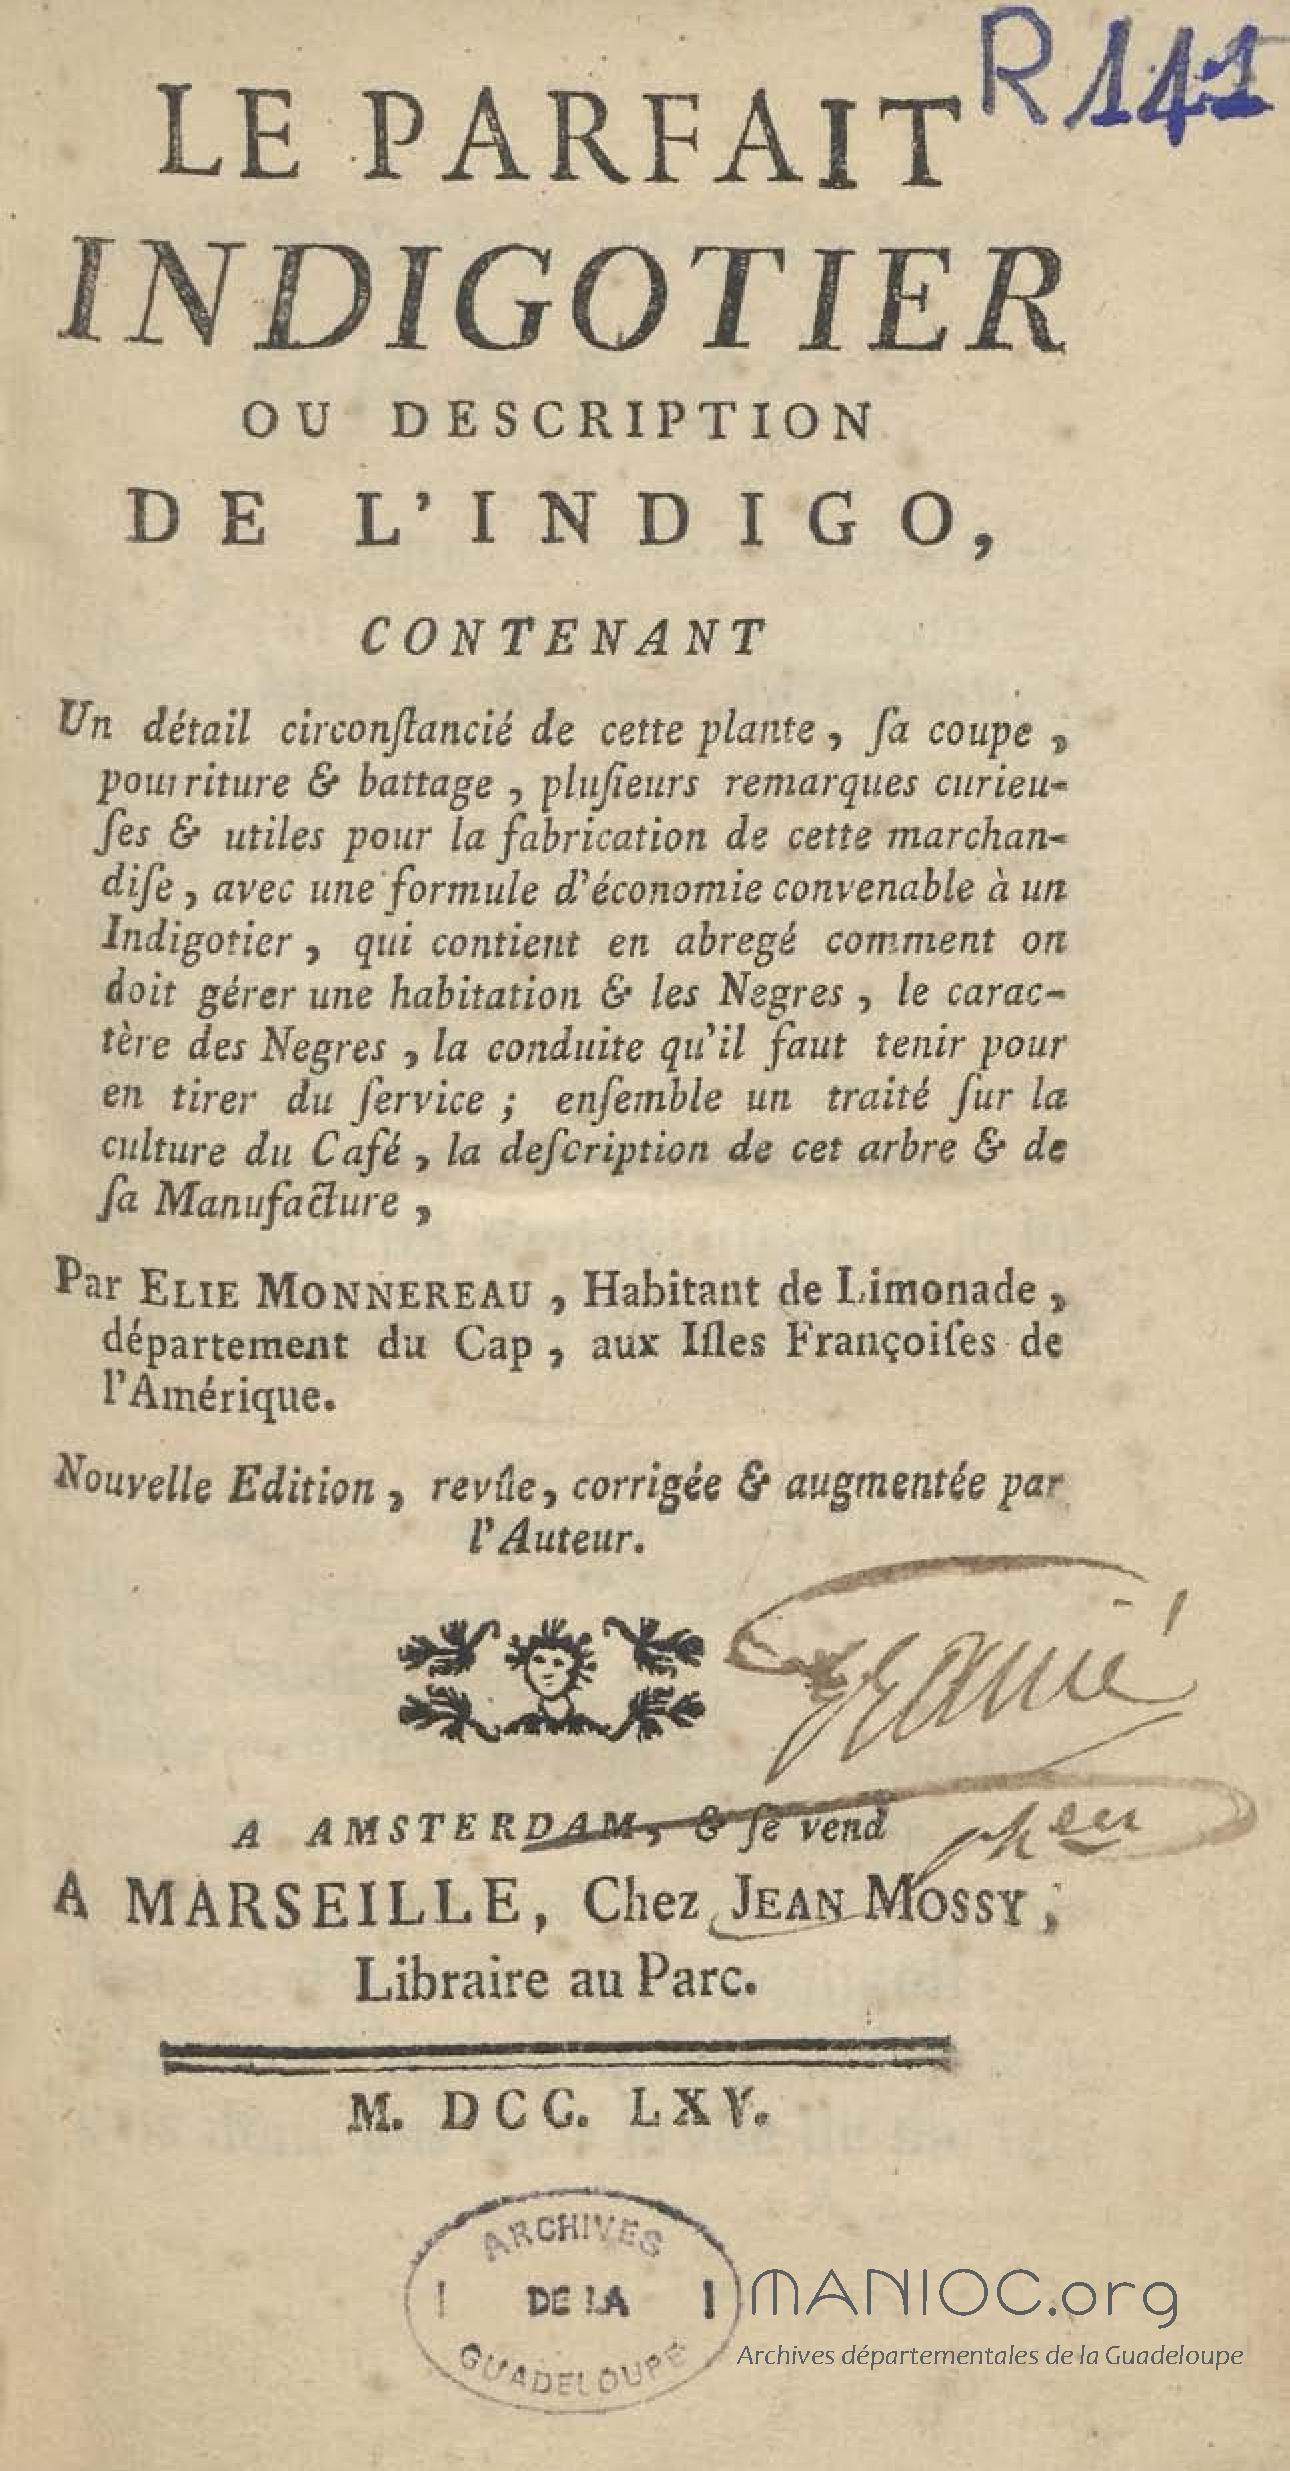 R141
LE PARFAIT
INDIGOTIER
OU DESCRIPTION
DE L'INDIGO,
CONTENANT
Un détail circonſtancié de cette plante, ſa coupe,
pourriture & battage, pluſieurs remarques curieu-
ſes & utiles pour la fabrication de cette marchan-
diſe, avec une formule d'économie convenable à un
Indigotier, qui contient en abregé comment on
doit gérer une habitation & les Negres, le carac-
tère des Negres, la conduite qu'il faut tenir pour
en tirer du ſervice; enſemble un traité ſur la
culture du Café, la deſcription de cet arbre & de
ſa Manufacture,
Par ELIE MONNEREAU, Habitant de Limonade,
département du Cap, aux Iſles Françoiſes de
l'Amérique.
Nouvelle Edition, revûe, corrigée & augmentée par
l'Auteur.
A AMSTERDAM, & ſe vend
A MARSEILLE, Chez JEAN MOSSY,
Libraire au Parc.
M. DCC. LXV.
ARCHIVES
DE LA
GUADELOUPE
MANIOC.org
Archives départementales de la Guadeloupe